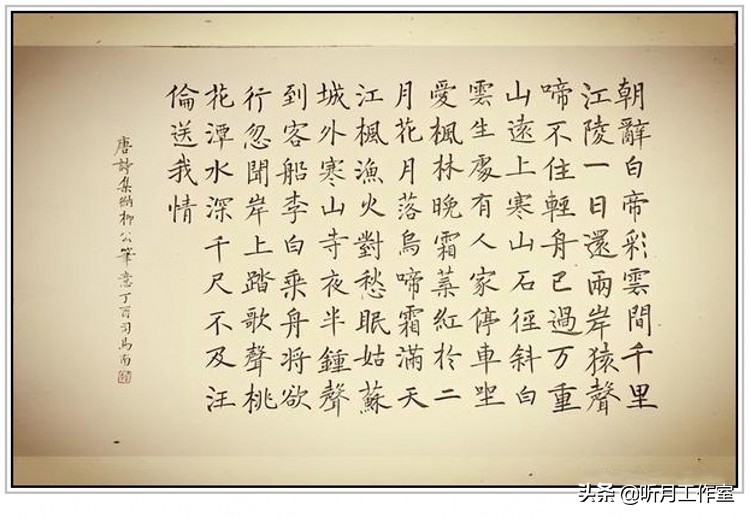 朝辭白帝彩雲間千里
江陵一日還兩岸猿聲
啼不住輕舟已過万重
山遠上寒山石徑斜白
雲生處有人家停車坐
愛楓林晚霜葉紅於二
月花月落烏啼霜滿天
江楓漁火對愁眠姑蘇
城外寒山寺夜半鍾聲
到客船李白乘舟將欲
行忽聞岸上踏歌聲桃
花潭水深千尺不及汪
倫送我情
唐詩集納柳公筆意丁酉司馬南
头条 @听月工作室